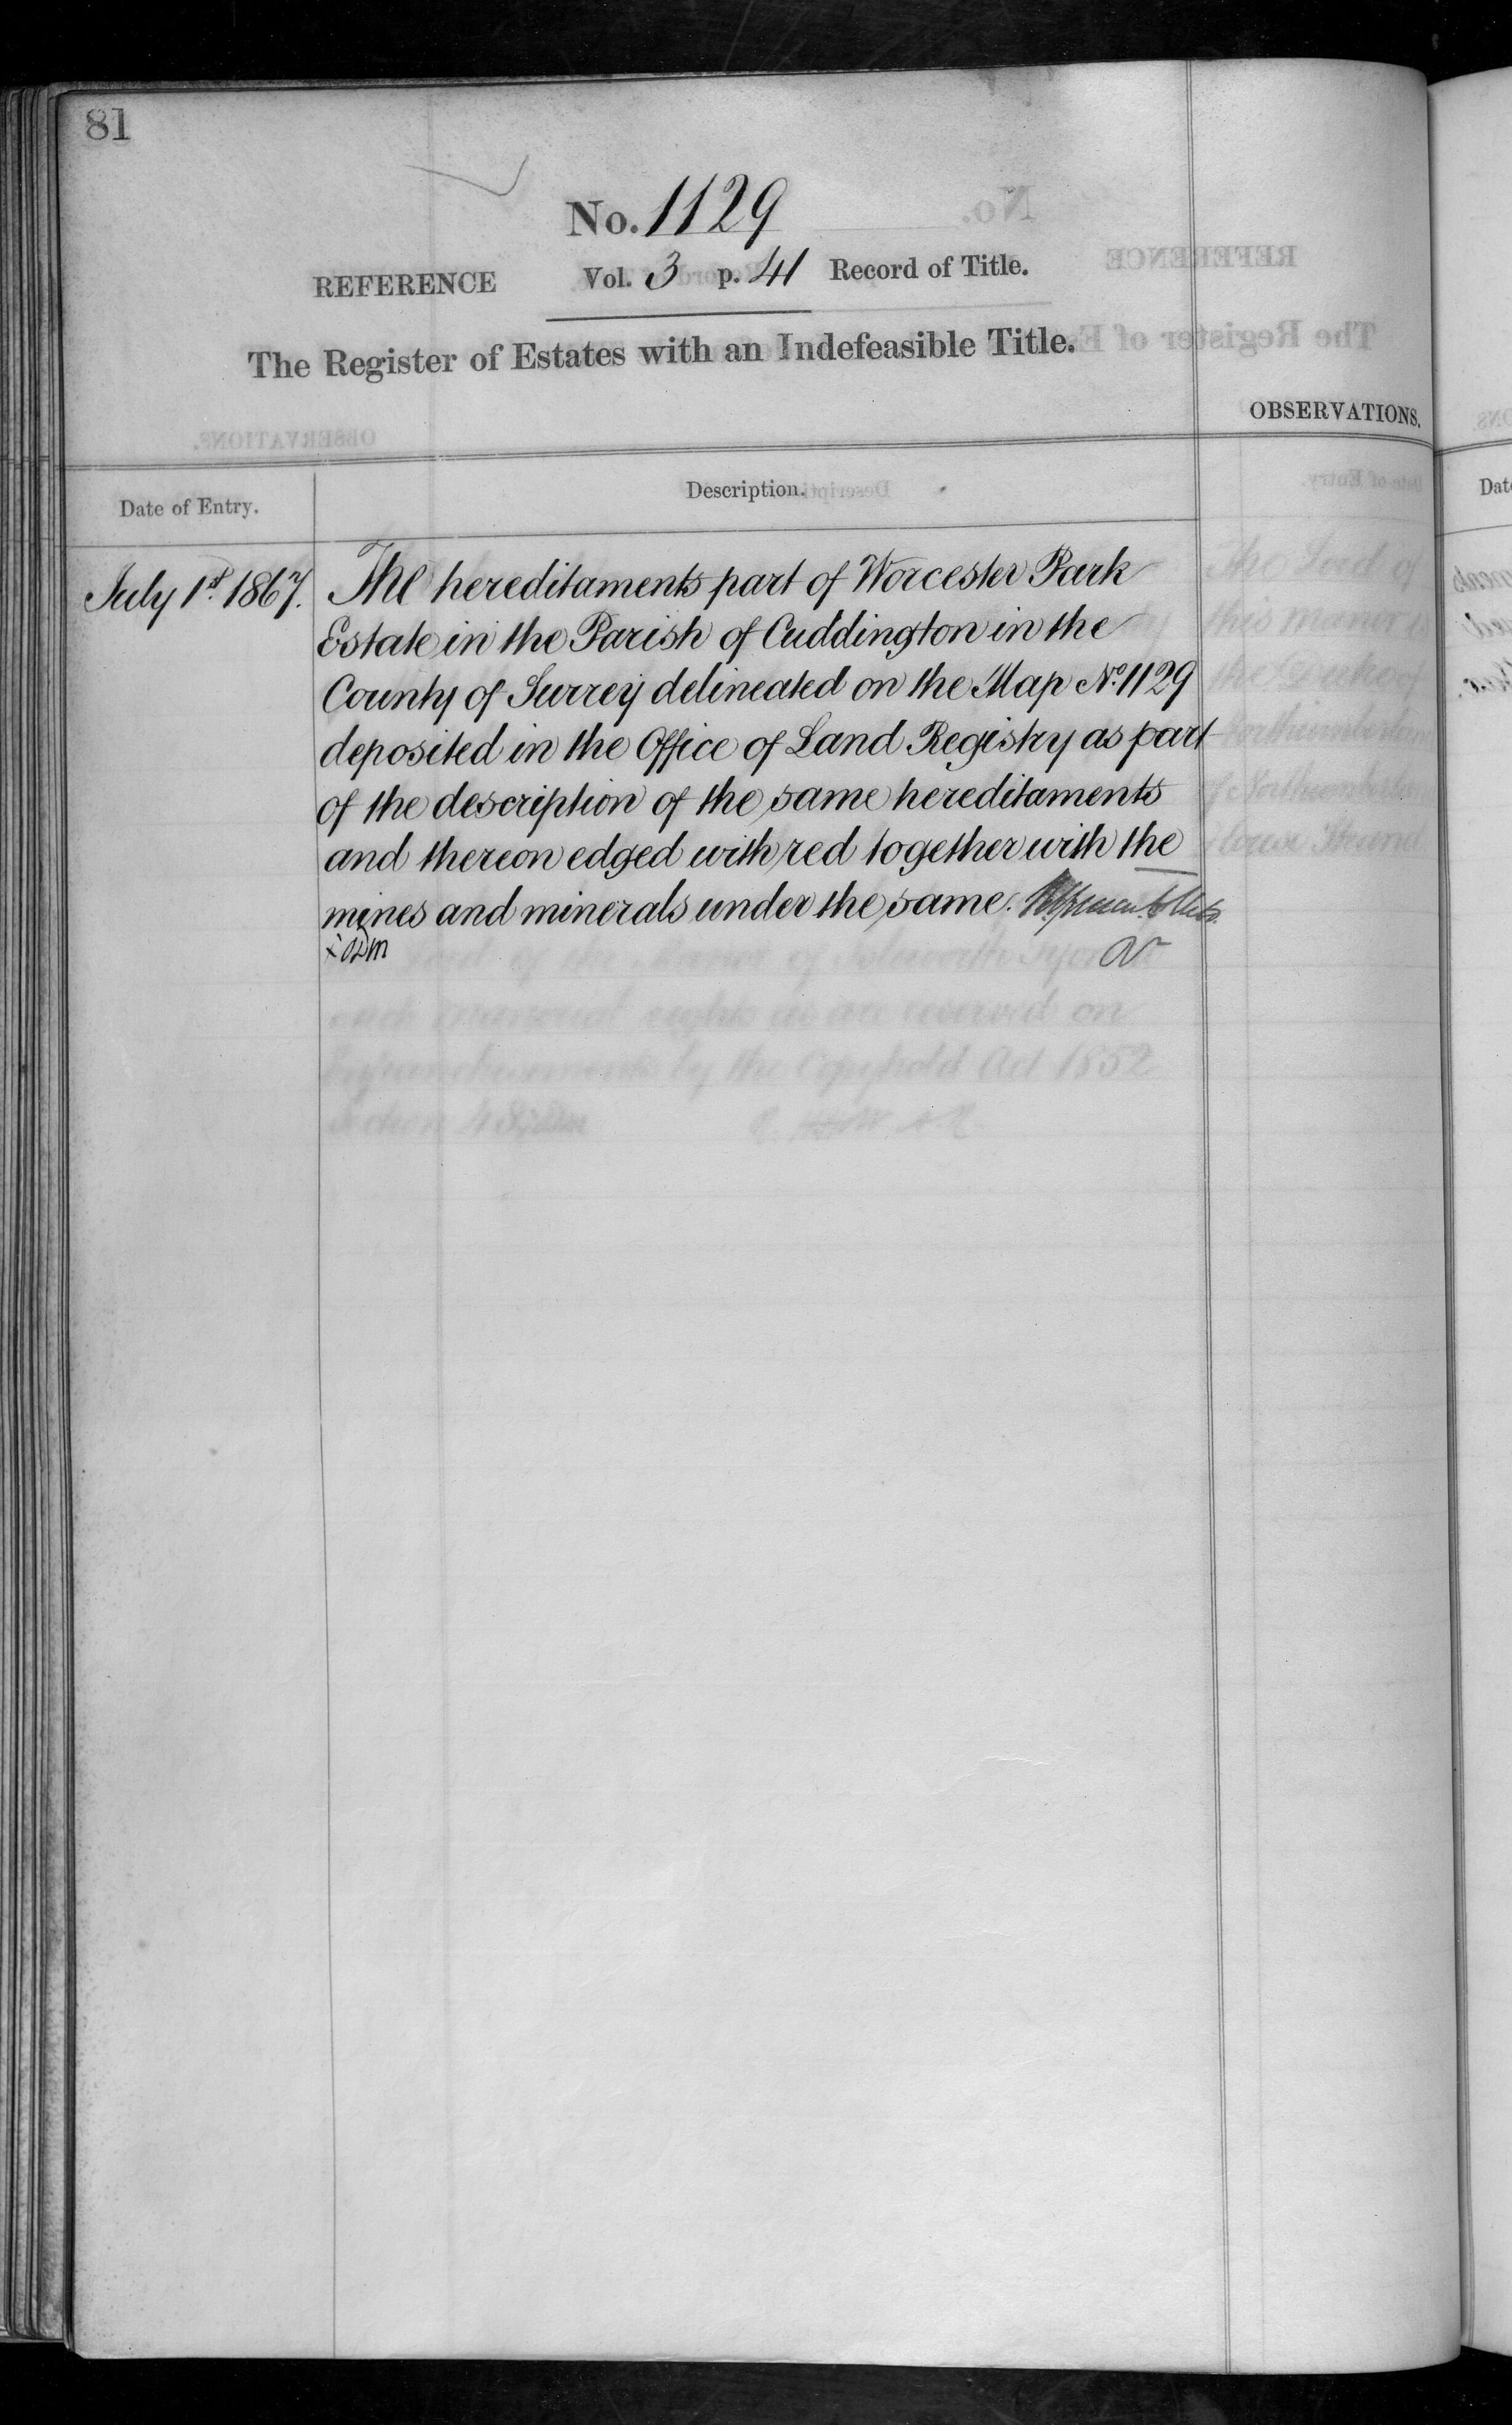 81
No. 1129
REFERENCE Vol. 3 p. 41 Record of Title.
The Register of Estates with an Indefeasible Title.
OBSERVATIONS.
Date of Entry.
Description.
July 1st. 1867.
The hereditaments part of Worcester Park
Estate in the Parish of Cuddington in the
County of Surrey delineated on the Map No. 1129
deposited in the Office of Land Registry as part
of the description of the same hereditaments
and thereon edged with red together with the
mines and minerals under the same.